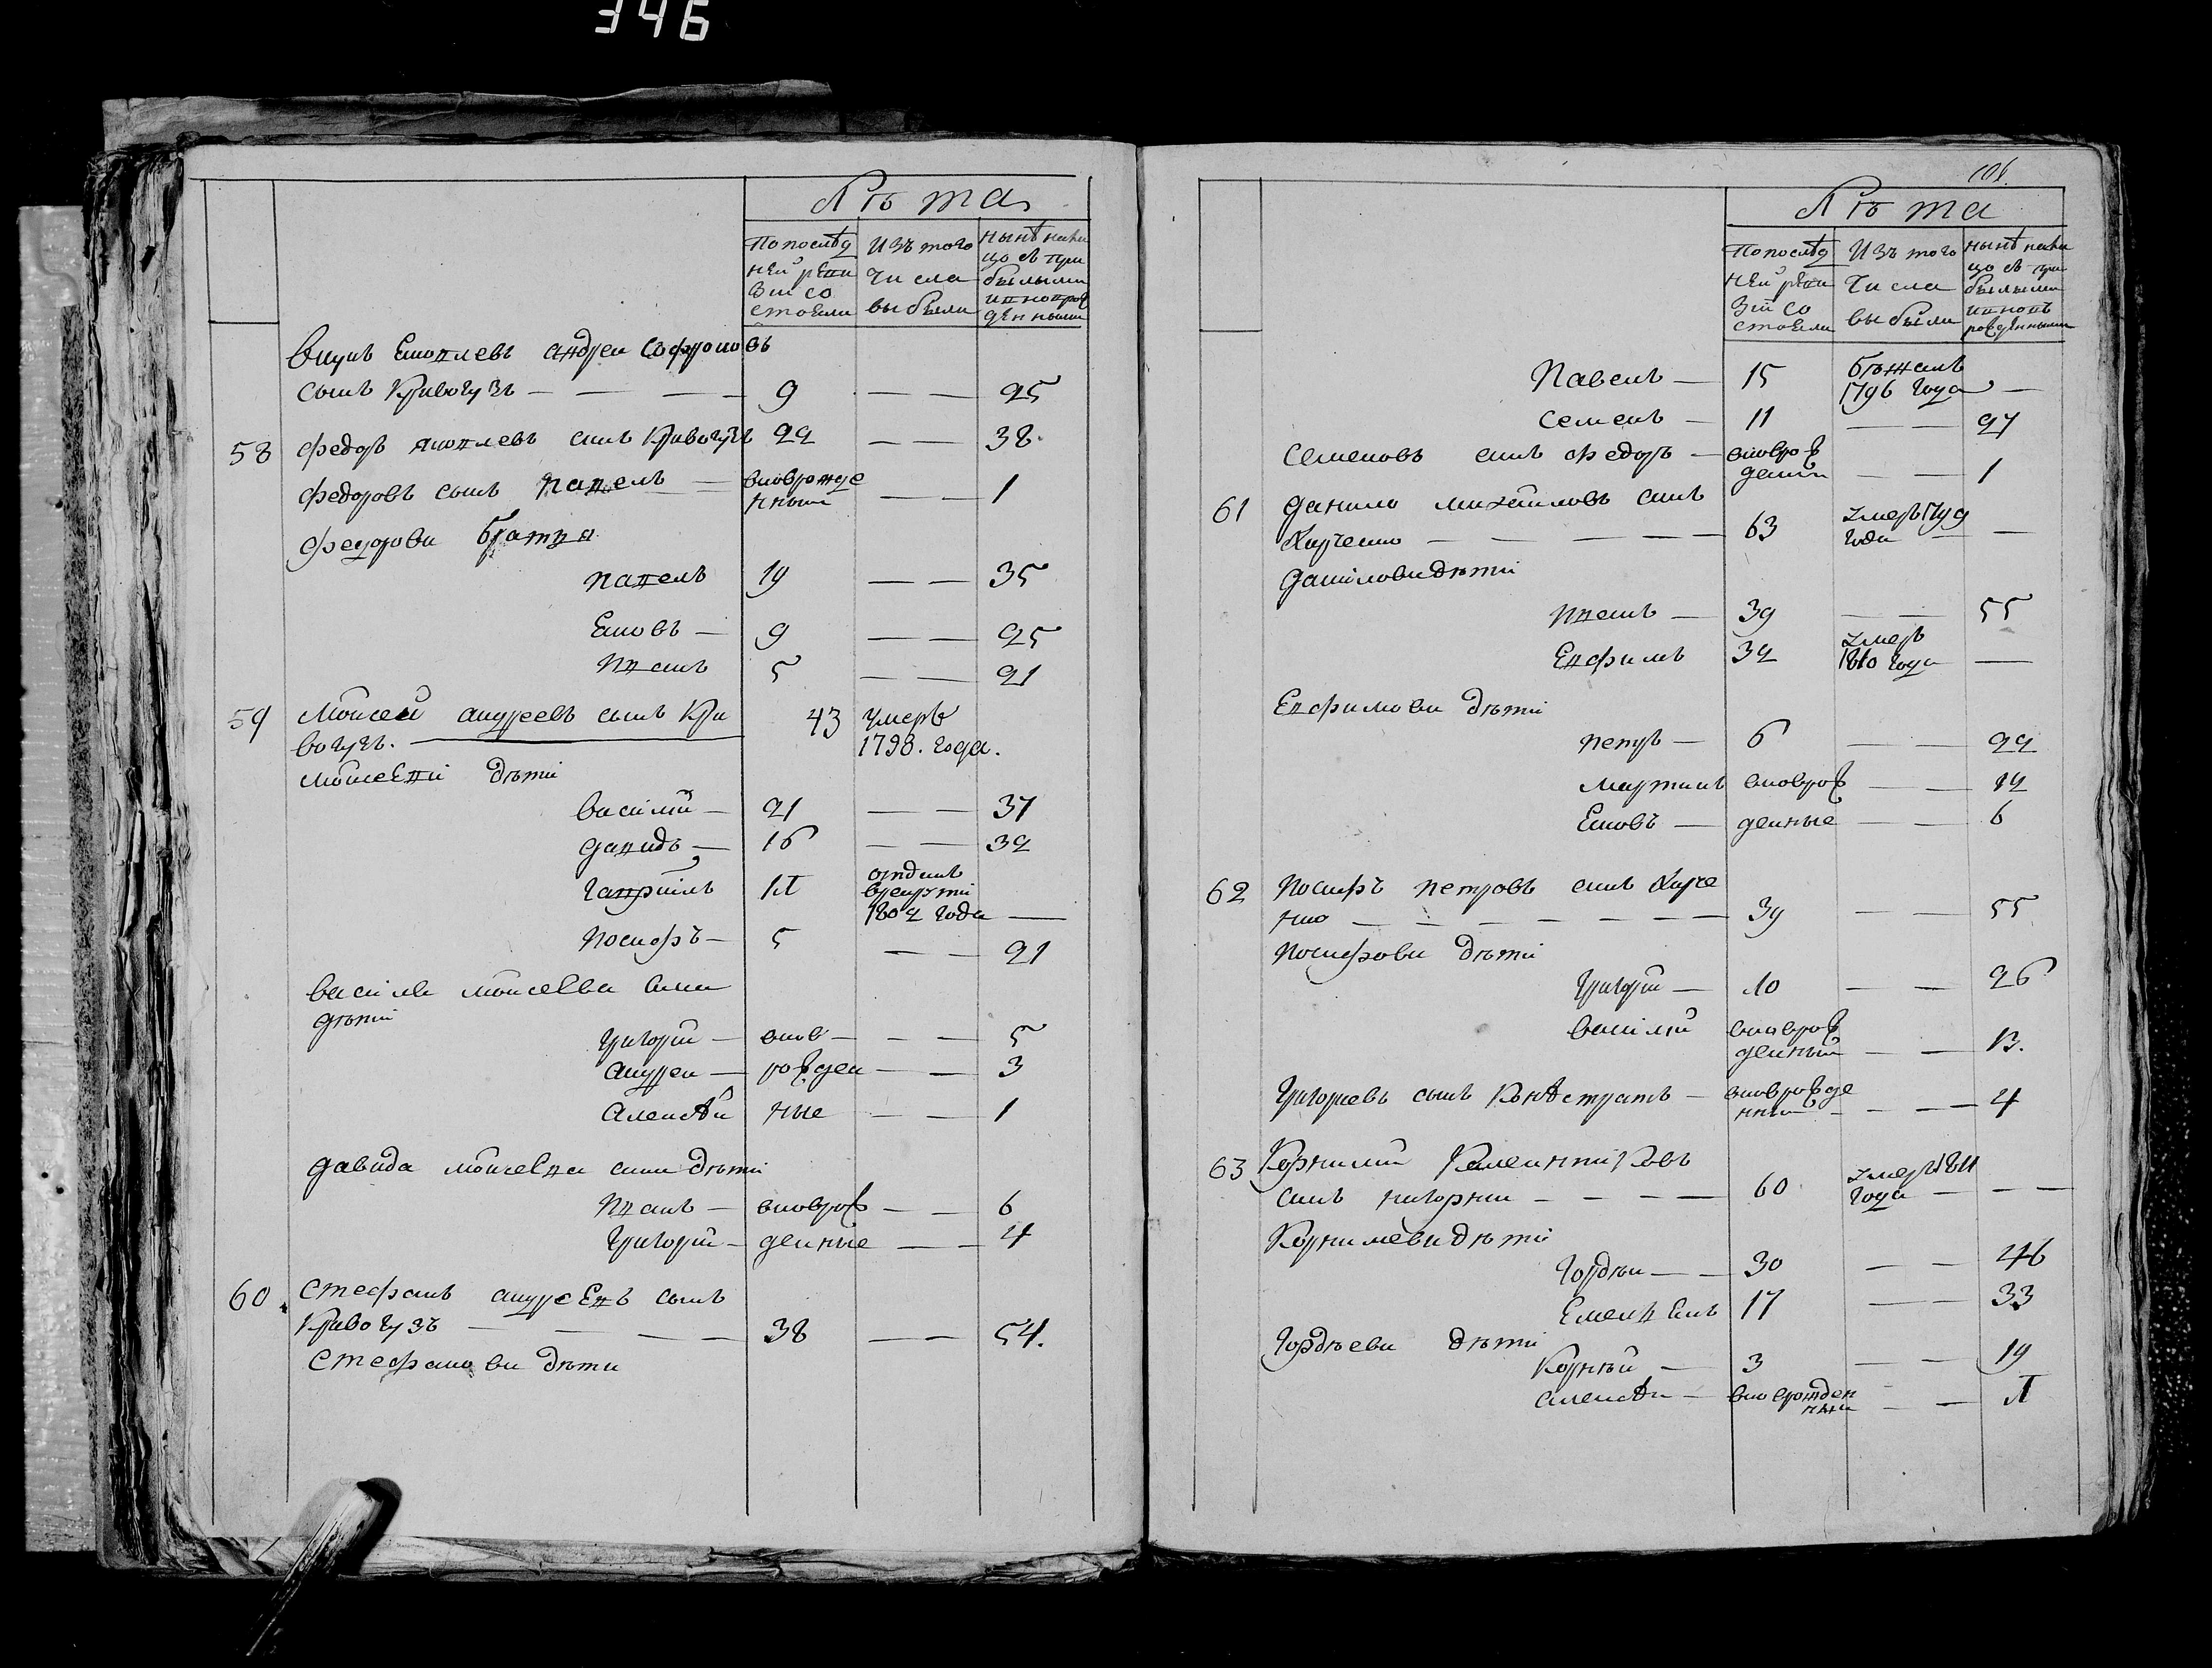 346
Лѣта
По послѣд
ней реви
зіи со
стояли
Изъ того
числа
выбыли
нынѣ на ли
цо съ при
былыми
и новорож
денными
внукъ Яковлевъ андрей Софроновъ
сынъ Кривогузъ — 9 — — 25
58 Федоръ яковлевъ сынъ Кривогузъ 22 — — 38.
Федоровъ сынъ павелъ — вноврожде
нный — — 1
Федорови братья
павелъ 19 — — 35
Яковъ — 9 — — 25
Иванъ 5 — — 21
59 Моисей андреевъ сынъ Кри
вогузъ. 43 умеръ
1798. года.
моисееви дѣти
василій — 21 — — 37
давидъ — 16 — — 32
гавріилъ 11 отданъ
в рекруты
1802 года —
Иосифъ — 5 — — 21
василя моисеева сина
дѣти
григорій — внов — — — 5
андрей — рожден — — 3
алексѣй ные — — 1
давида моисеева сина дѣти
Иванъ — вноврож — — 6
григорій — денные — — 4
60. стефанъ андреевъ сынъ
Кривогузъ — — — — 38 — — 54.
Стефанови дѣти
101
Лѣта
По послѣд
ней реви
зіи со
стояли
Изъ того
числа
выбыли
нынѣ на ли
цо съ при
былыми
и новъ
рожденными
Павелъ — 15 бѣжалъ
1796 года —
Семенъ — 11 — — 27
Семеновъ синъ Федоръ — вноврож
денний — — 1
61 данило михайловъ синъ
Харченко — — — — — 63 умеръ 1799
года — —
данилови дѣти
Иванъ — 39 — — 55
Евфимъ 32 умеръ
1810 года —
Евфимови дѣти
петръ — 6 — — 22
мартинъ вноврож — — 12
Яковъ — денные — — 6
62 Иосифъ петровъ синъ Харче
нко — — — — — — — 39 — — 55
Иосифови дѣти
григорій — 10 — — 26
василій вноврож
денный — — 13.
григориевъ сынъ Калѣстратъ — вноврожде
нный — — — 4
63 Корнилий
синъ — — — — 60 умеръ 1811
года — — —
Корнилиеви дѣти
гордѣй — — 30 — — 46
Емельянъ 17 — — 33
гордѣеви дѣти
Корнѣй — 3 — — 19
алексѣй — вноврожден
ный — — 11